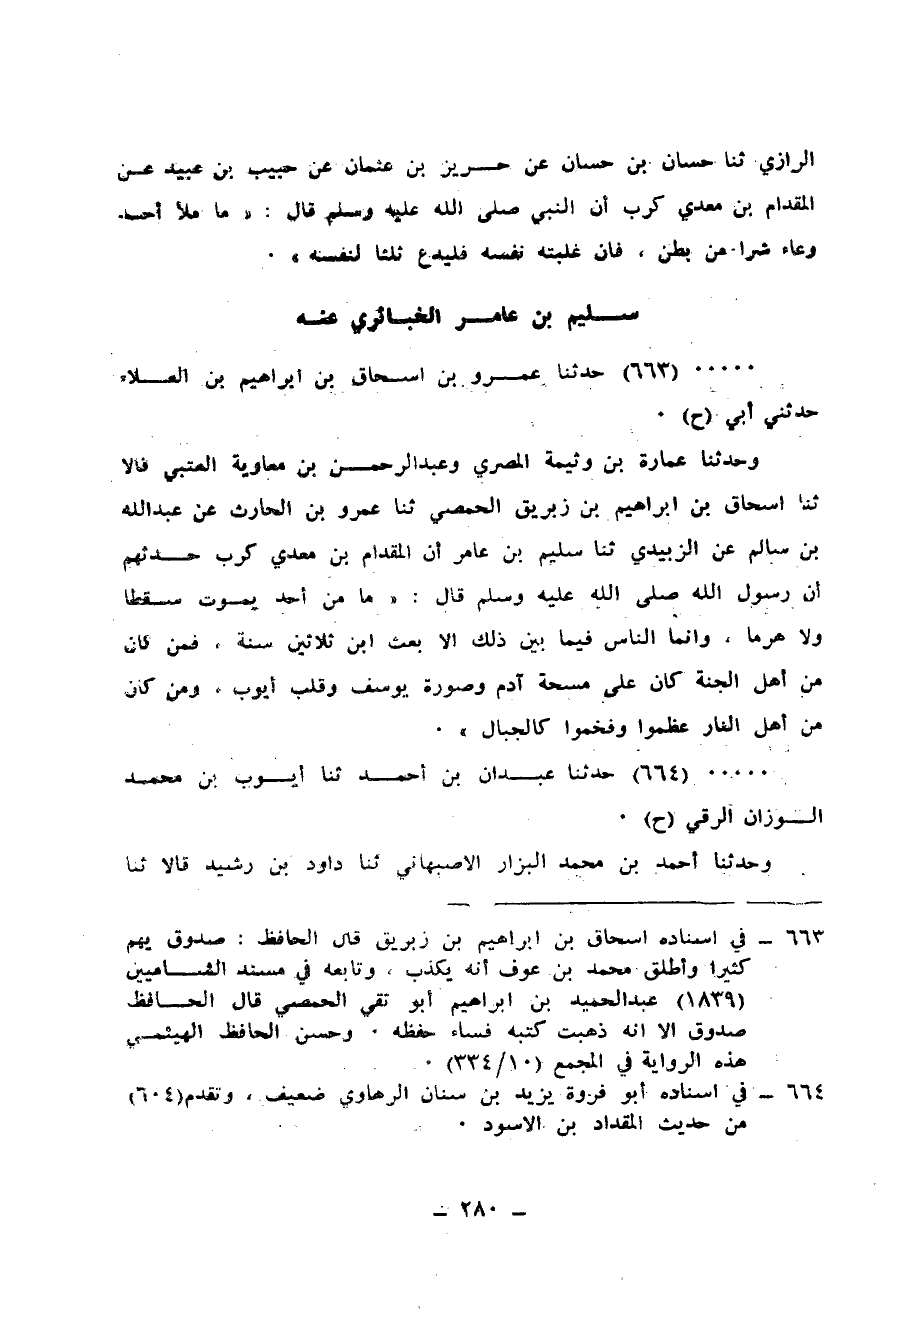 الرازي ثنا حسان بن حسان عن حريز بن عثمان عن حبيب بن عبيد عن
المقدام بن معدي كرب أن النبي صلى الله عليه وسلم قال : « ما ملأ أحد
وعاء شرا من بطن ، فان غلبته نفسه فليدع ثلثا لنفسه » ٠
سليم بن عامر الخبائري عنه
٠٠٠٠٠ (٦٦٣) حدثنا عمرو بن اسحاق بن ابراهيم بن العلاء
حدثني أبي (ح) ٠
وحدثنا عمارة بن وثيمة المصري وعبدالرحمن بن معاوية العتبي قالا
ثنا اسحاق بن ابراهيم بن زبريق الحمصي ثنا عمرو بن الحارث عن عبدالله
بن سالم عن الزبيدي ثنا سليم بن عامر أن المقدام بن معدي كرب حدثهم
أن رسول الله صلى الله عليه وسلم قال : « ما من أحد يموت سقطا
ولا هرما ، وانما الناس فيما بين ذلك الا بعث ابن ثلاثين سنة ، فمن كان
من أهل الجنة كان على مسحة آدم وصورة يوسف وقلب أيوب ، ومن كان
من أهل النار عظموا وفخموا كالجبال » ٠
٠٠٠٠٠ (٦٦٤) حدثنا عبدان بن أحمد ثنا أيوب بن محمد
الوزان الرقي (ح) ٠
وحدثنا أحمد بن محمد البزار الاصبهاني ثنا داود بن رشيد قالا ثنا
٦٦٣ ـ في اسناده اسحاق بن ابراهيم بن زبريق قال الحافظ : صدوق يهم
كثيرا وأطلق محمد بن عوف أنه يكذب ، وتابعه في مسند الشاميين
(١٨٣٩) عبدالحميد بن ابراهيم أبو تقي الحمصي قال الحافظ
صدوق الا انه ذهبت كتبه فساء حفظه ٠ وحسن الحافظ الهيثمي
هذه الرواية في المجمع (٣٣٤/١٠) ٠
٦٦٤ ـ في اسناده أبو فروة يزيد بن سنان الرهاوي ضعيف ، وتقدم(٦٠٤)
من حديث المقداد بن الاسود ٠
ـ ٢٨٠ ـ